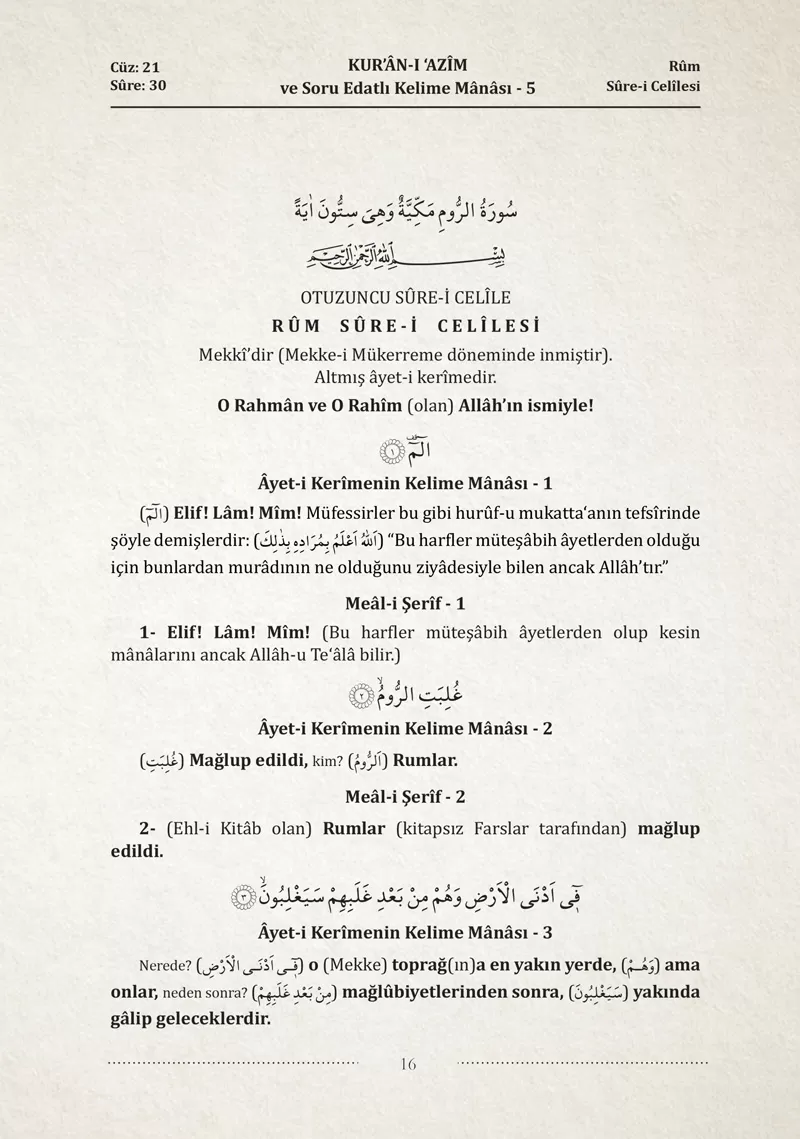 Cüz: 21
Sûre: 30
KUR’ÂN-I ‘AZÎM
ve Soru Edatlı Kelime Mânâsı - 5
Rûm
Sûre-i Celîlesi
سُورَةُ الرُّومِ مَكِّيَّةٌ وَهِيَ سِتُّونَ اٰيَةً
بِسْــــــمِ اللّٰهِ الرَّحْمٰنِ الرَّحِيمِ
OTUZUNCU SÛRE-İ CELÎLE
RÛM SÛRE-İ CELÎLESİ
Mekkî’dir (Mekke-i Mükerreme döneminde inmiştir).
Altmış âyet-i kerîmedir.
O Rahmân ve O Rahîm (olan) Allâh’ın ismiyle!
الٓمٓ ﴿١﴾
Âyet-i Kerîmenin Kelime Mânâsı - 1
(الٓمٓ) Elif! Lâm! Mîm! Müfessirler bu gibi hurûf-u mukatta‘anın tefsîrinde
şöyle demişlerdir: (اَللّٰهُ اَعْلَمُ بِمُرَادِهِ بِذٰلِكَ) “Bu harfler müteşâbih âyetlerden olduğu
için bunlardan murâdının ne olduğunu ziyâdesiyle bilen ancak Allâh’tır.”
Meâl-i Şerîf - 1
1- Elif! Lâm! Mîm! (Bu harfler müteşâbih âyetlerden olup kesin
mânâlarını ancak Allâh-u Te‘âlâ bilir.)
غُلِبَتِ الرُّومُۙ ﴿٢﴾
Âyet-i Kerîmenin Kelime Mânâsı - 2
(غُلِبَتِ) Mağlup edildi, kim? (اَلرُّومُ) Rumlar.
Meâl-i Şerîf - 2
2- (Ehl-i Kitâb olan) Rumlar (kitapsız Farslar tarafından) mağlup
edildi.
فٖٓى اَدْنَى الْاَرْضِ وَهُمْ مِنْ بَعْدِ غَلَبِهِمْ سَيَغْلِبُونَۙ ﴿٣﴾
Âyet-i Kerîmenin Kelime Mânâsı - 3
Nerede? (فٖٓى اَدْنَى الْاَرْضِ) o (Mekke) toprağ(ın)a en yakın yerde, (وَهُمْ) ama
onlar, neden sonra? (مِنْ بَعْدِ غَلَبِهِمْ) mağlûbiyetlerinden sonra, (سَيَغْلِبُونَ) yakında
gâlip geleceklerdir.
16